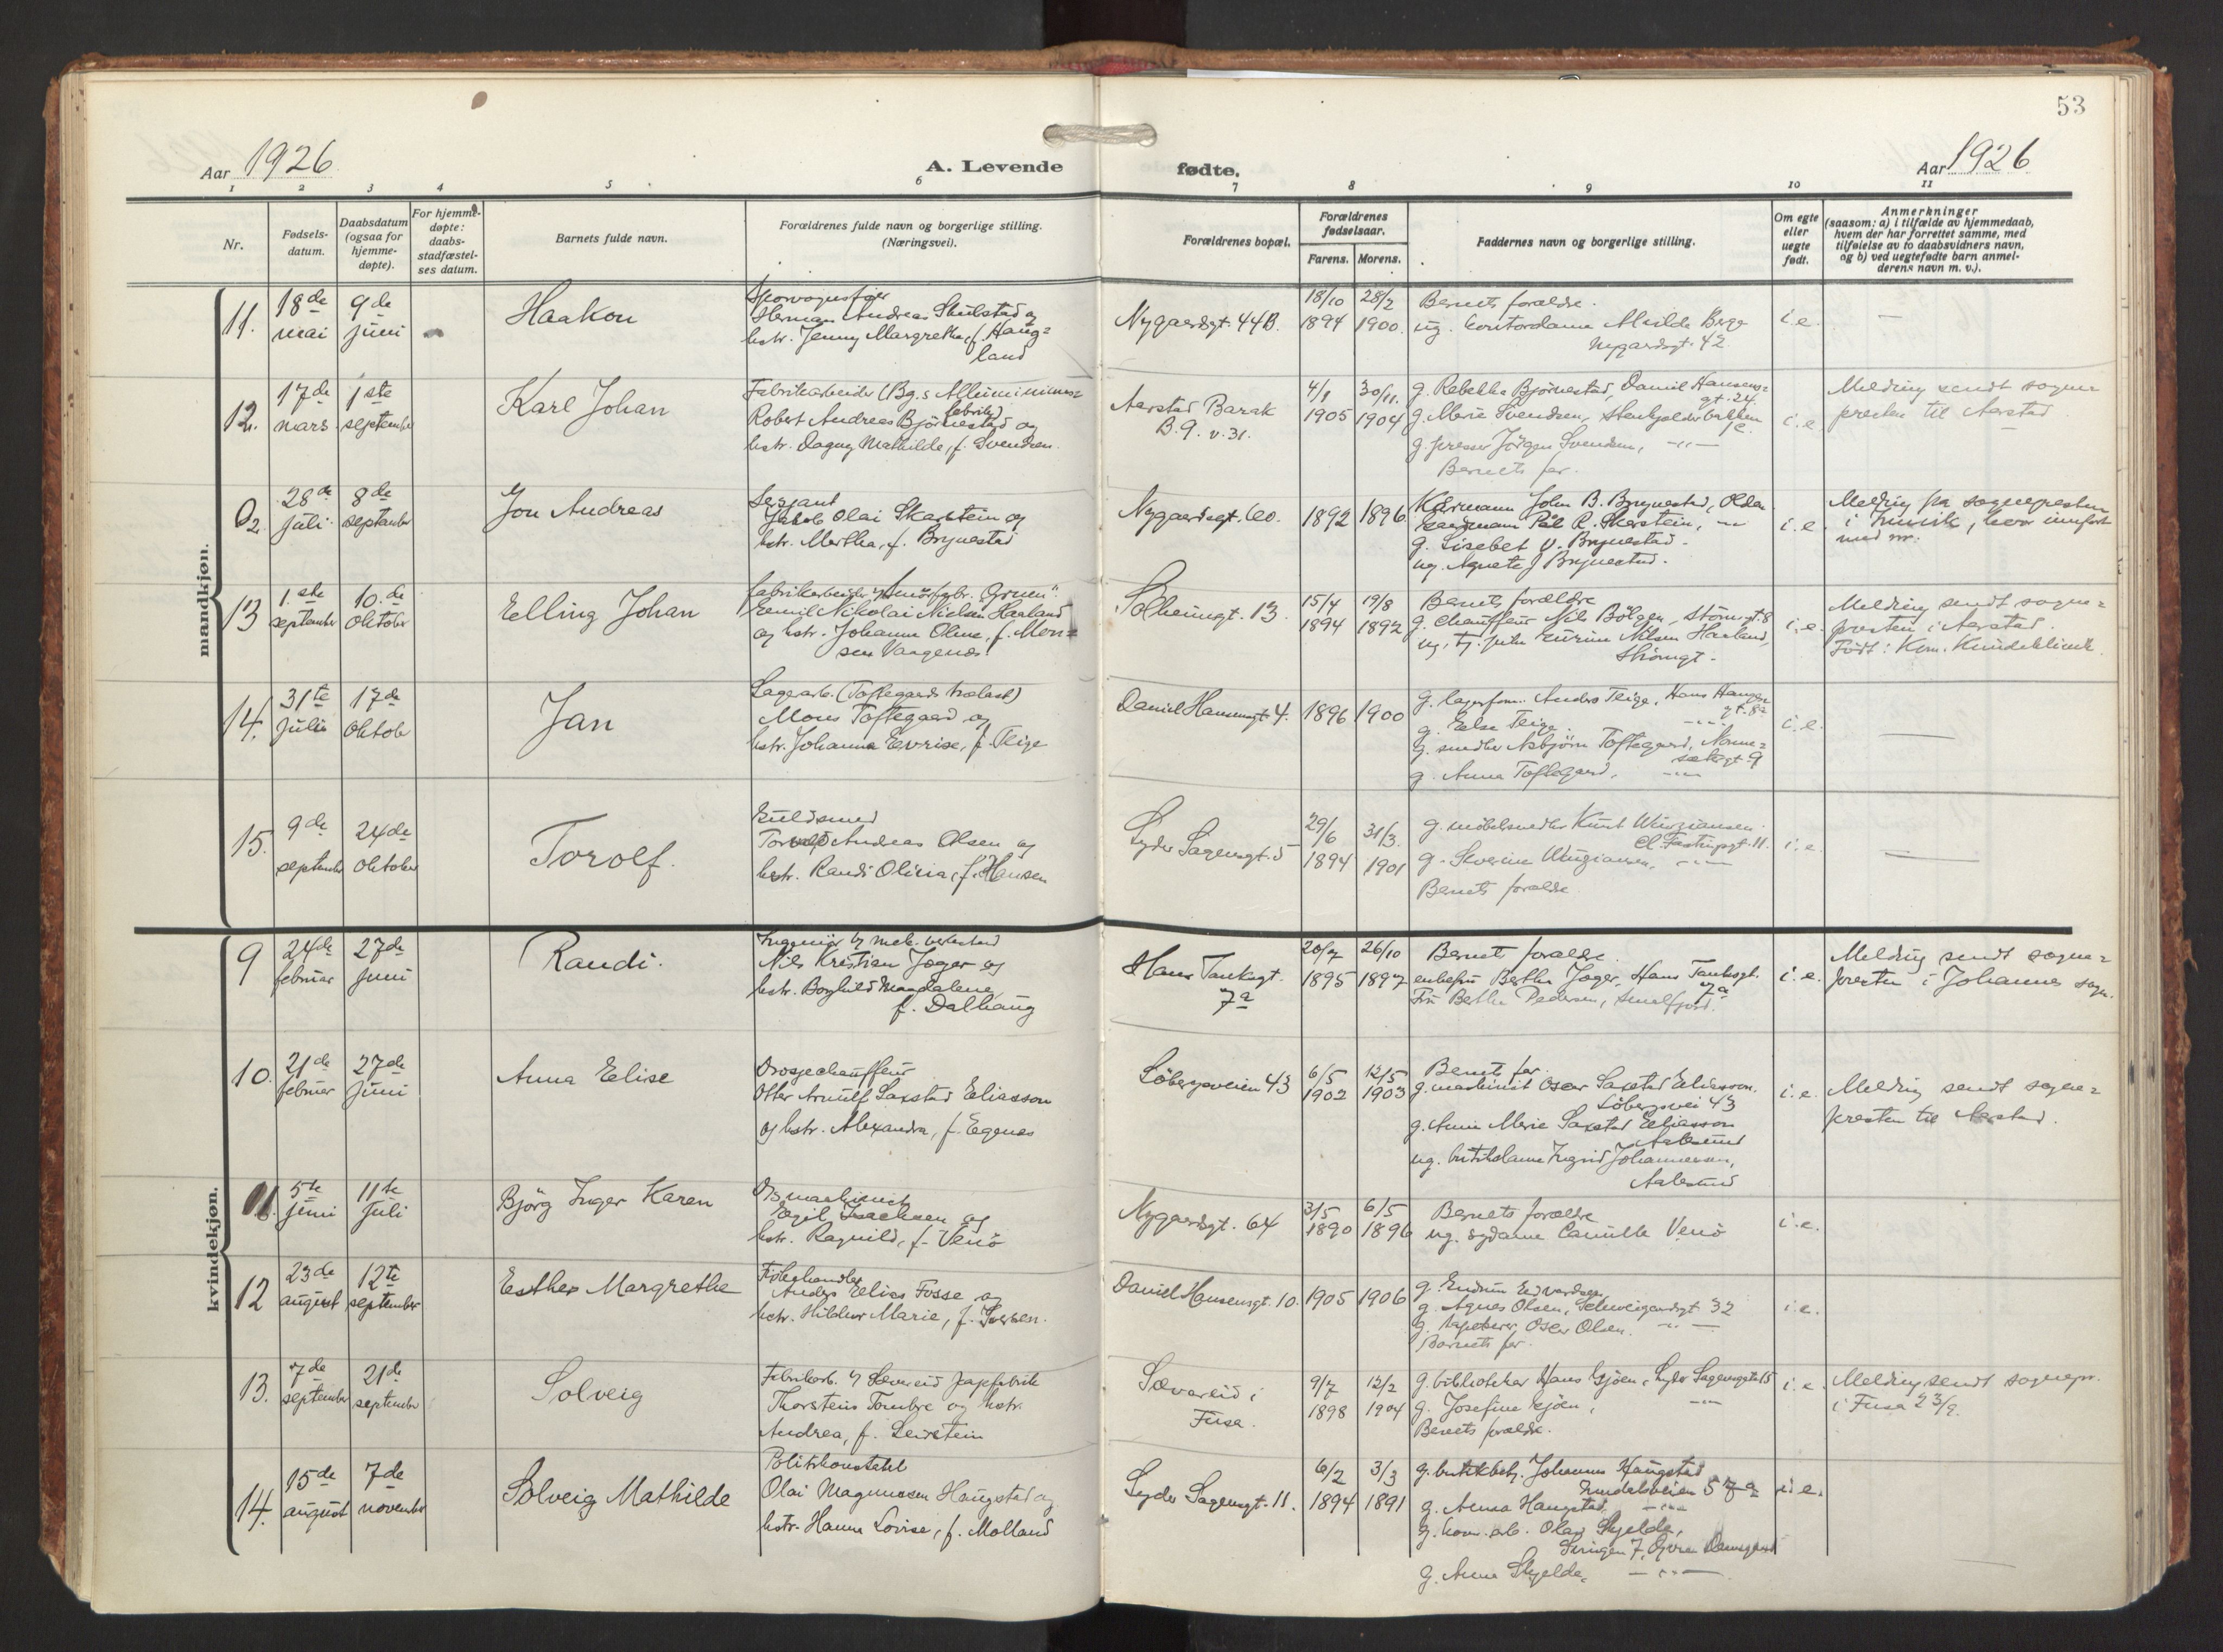 53
Aar 1926
A. Levende
fødte.
Aar 1926
1 2 3 4 5 6 7 8 9 10 11
Nr.
Fødsels-
datum.
Daabsdatum
(ogsaa for
hjemme-
døpte).
For hjemme-
døpte:
daabs-
stadfæstel-
ses datum.
Barnets fulde navn.
Forældrenes fulde navn og borgerlige stilling.
(Næringsvei).
Forældrenes bopæl.
Forældrenes
fødselsaar.
Farens. Morens.
Faddernes navn og borgerlige stilling.
Om egte
eller
uegte
født.
Anmerkninger
(saasom: a) i tilfælde av hjemmedaab,
hvem der har forrettet samme, med
tilføielse av to daabsvidners navn,
og b) ved uegtefødte barn anmel-
derens navn m. v.).
mandkjøn.
11.
18de
mai
9de
juni
Haakon
Herman Andreas Skulstad og
hstr. Jenny Margrethe, f. Haug=
land
Nygaardsgt. 44B.
18/10
1894
28/2
1900.
Barnets forældre.
ug. kontordame Alvilde Berge
Nygaardsgt. 42
i.e.
—
12.
17de
mars
1ste
september
Karl Johan
Fabrikarbeider (Bg.s Alluminiums=
fabrik)
Robert Andreas Bjørnestad og
hstr. Dagny Mathilde, f. Svendsen.
Aarstad Barak
B. 9. v. 31.
4/8
1905
30/11.
1904
g. Rebekka Bjørnestad, Daniel Hansens=
gt. 24.
g. Marie Svendsen,
g. presser Jörgen Svendsen, —"—
Barnets far.
i.e.
Melding sendt sogne=
presten til Aarstad
02.
28de
juli
8de
september
Jon Andreas
Sersjant
Jakob Olai Skarstein og
hstr. Martha, f. Brynestad
Nygaardsgt. 60.
1892
1896
John B. Brynestad, Olden
Gaardmann Pål R. Skarstein, —"—
g. Lisebet V. Brynestad.
ug. Agnete J Brynestad.
i.e.
Melding fra sognepresten
i Innvik, hvor innført
med nr.
13
1.ste
september
10.de
oktober
Elling Johan
Emil Nikolai Nielsen Haaland
og hstr. Johanne Oline, f. Mon=
sen Vaagenes.
Solheimsgt. 13.
15/4
1894
19/8
1892
Barnets forældre
g. chauffeur Nils Bölgen, Strömgt. 8
ug. tj. pike Nilsen Haaland,
Strömgt.
i.e.
Melding sendt sogne=
presten i Aarstad.
Født: Kom. Kvindeklinik.
14.
31te
juli
17de
oktob
Jan
Lagerarb. (Toftegaards trælast)
Mons Toftegaard og
hstr. Johanna Lovise, f. Teige
Daniel Hansensgt. 4.
1896
1900
g. lagerform. Anders Teige, Hans Hauges=
gt. 8a
g. Else Teige. —"—
g. snedker Asbjørn Toftegaard, Nonne=
sætergt. 9
g. Anna Toftegaard, —"—
i.e.
—
15.
9de
september
24de
oktober
Torolf.
Guldsmed
Torolf Andreas Olsen og
hstr. Randi Olivia, f. Hansen
Lyder Sagensgt. 5
29/6
1894
31/3.
1901
g. møbelsnedker Knut
Cl. Fastingsgt. 11.
g. Severine —"—
Barnets forældre
i.e.
—
kvindekjøn.
9
24de
februar
27de
juni
Randi.
Ingeniør v/ mek. verksted
Nils Kristian Jæger og
hstr. Borghild Magdalene,
f. Dalhaug
Hans Tanksgt.
7a
20/7
1895
26/10
1897
Barnets forældre.
enkefru Berthe Jæger, Hans Tanksgt.
7a
Fru Berthe Pedersen,
i.e.
Melding sendt sogne=
presten i Johannes sogn.
10.
21de
februar
27de
juni
Anna Elise
Drosjechauffeur
Otter Arnulf Saxstad Eliasson
og hstr. Alexandra, f. Egenes
Löbergsveien 43
6/5
1902
12/5
1903
Barnets far.
g. maskinist Oscar Saxstad Eliasson.
Löbergsvei 43
g. Anne Marie Saxstad Eliasson
Aalesund
ug. butikdame Ingrid Johannessen,
Aalesund
i.e.
Melding sendt sogne=
presten til Aarstad.
11.
5te
juni
11te
juli
Björg Inger Karen
Egil Isachsen og
hstr. Ragnild, f. Venö
Nygaardsgt. 64
3/5
1890
6/5
1896
Barnets forældre
ug. sydame Camilla Venö
i.e.
12
23de
august
12te
september
Esther Margrethe
Fiskehandler
Anders Elias Fosse og
hstr. Hildur Marie, f. Iversen.
Daniel Hansensgt. 10.
1905
1906
g. Gudrun Edvardsen,
g. Agnes Olsen, Schweigaardsgt 32
g. tapetserer Oscar Olsen. —"—
Barnets far.
i.e.
13.
7de
september
21de
september
Solveig
Fabrikarb. v/ Sævareid pappfabrik
Thorstein Tombre og hstr.
Andrea, f. Leirstein
Sævareid i
Fusa.
9/7
1898
12/2
1904
g. bibliotekar Hans Gjøen, Lyder Sagensgate 15
g. Josefine Gjøen, —"—
Barnets forældre.
i.e.
Melding sendt sognepr.
i Fusa 23/9.
14.
15de
august
7de
november
Solveig Mathilde
Politikonstabel
Olai Magnussen Haugstad og
hstr. Hanna Lovise, f. Molland
Lyder Sagensgt. 11.
6/2
1894
3/3
1891
g. butikbetj. Johannes Haugstad
57a
g. Anna Haugstad —"—
g. kom. arb. Olav Skjelde,
7, Øvre Damsgaard
g. Anna Skjelde, —"—
i.e.